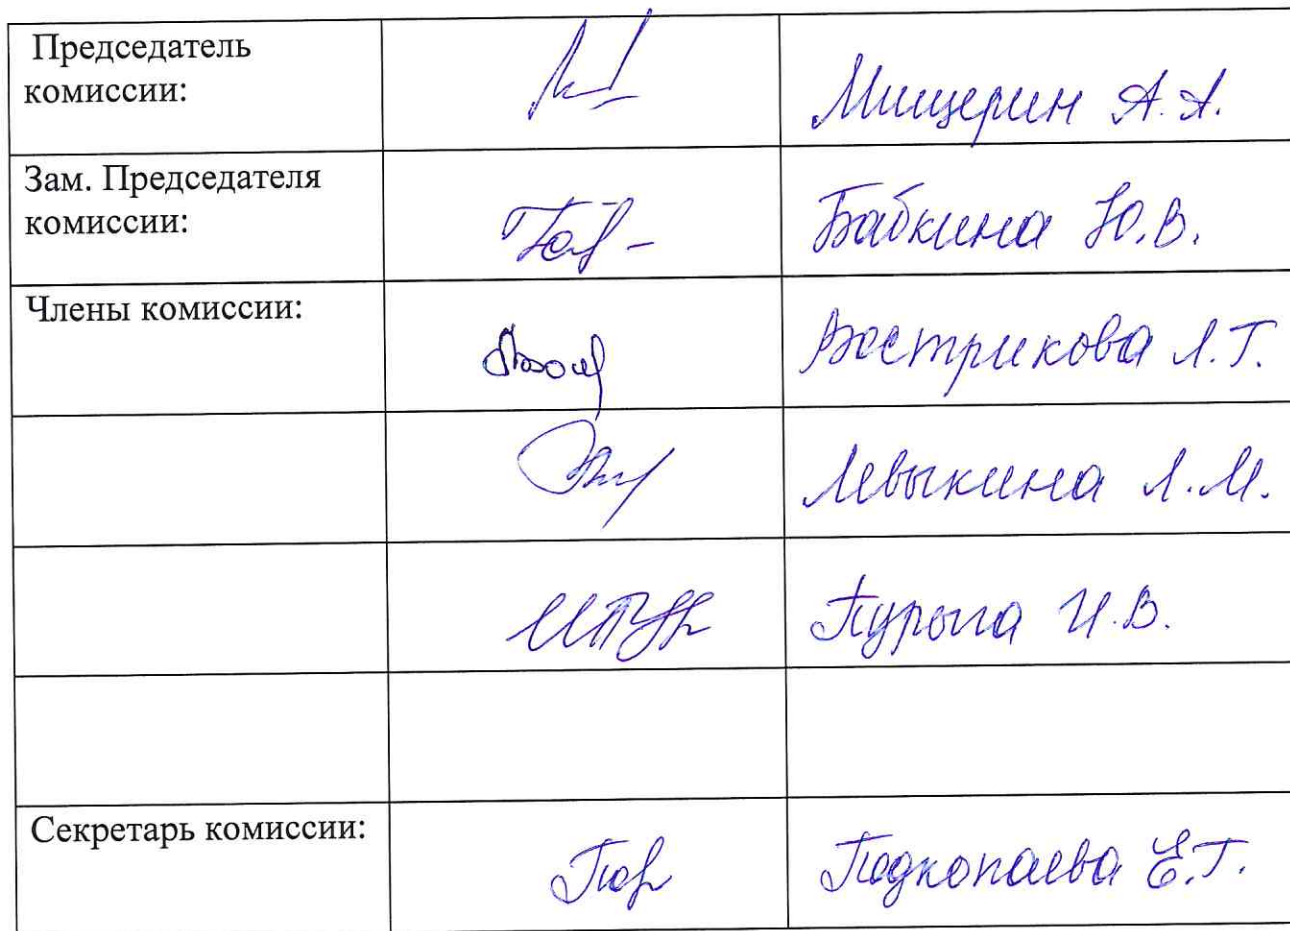 Председатель
комиссии:
Мищерин А.А.
Зам. Председателя
комиссии:
Бабкина Ю.В.
Члены комиссии:
Вострикова Л.Г.
Левыкина Л.М.
Пурыга И.В.
Секретарь комиссии:
Подкопаева Е.Г.